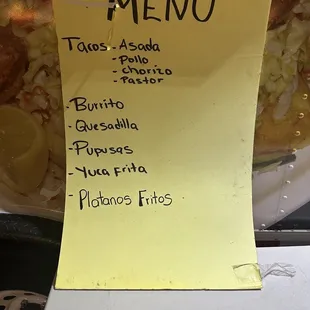 MENU
Tacos - Asada
- Pollo
- chorizo
- Pastor
- Burrito
- Quesadilla
- Pupusas
- Yuca Frita
- Platanos Fritos